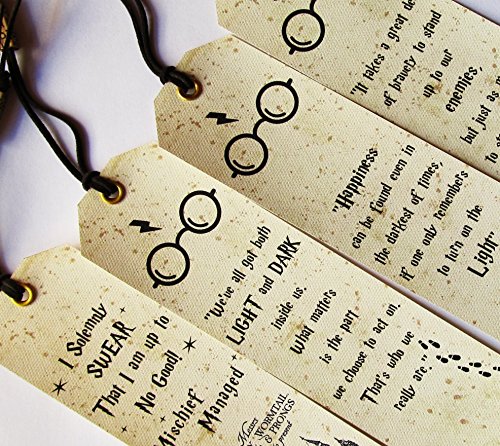 "It takes a great de
of bravery to stand
up to our
enemies,
but just as
"Happiness
can be found even in
the darkest of times,
if one only remembers
to turn on the
Light"
"We've all got both
LIGHT and DARK
inside us.
What matters
is the part
we choose to act on.
That's who we
really are."
I Solemnly
SWEAR
That I am up to
No Good!
Mischief
Managed
WORMTAIL
& PRONGS